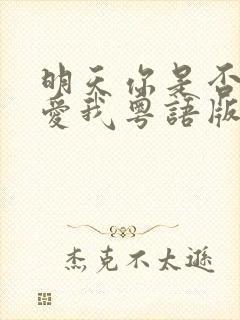 明天你是否
愛我粵語版
杰克不太遜